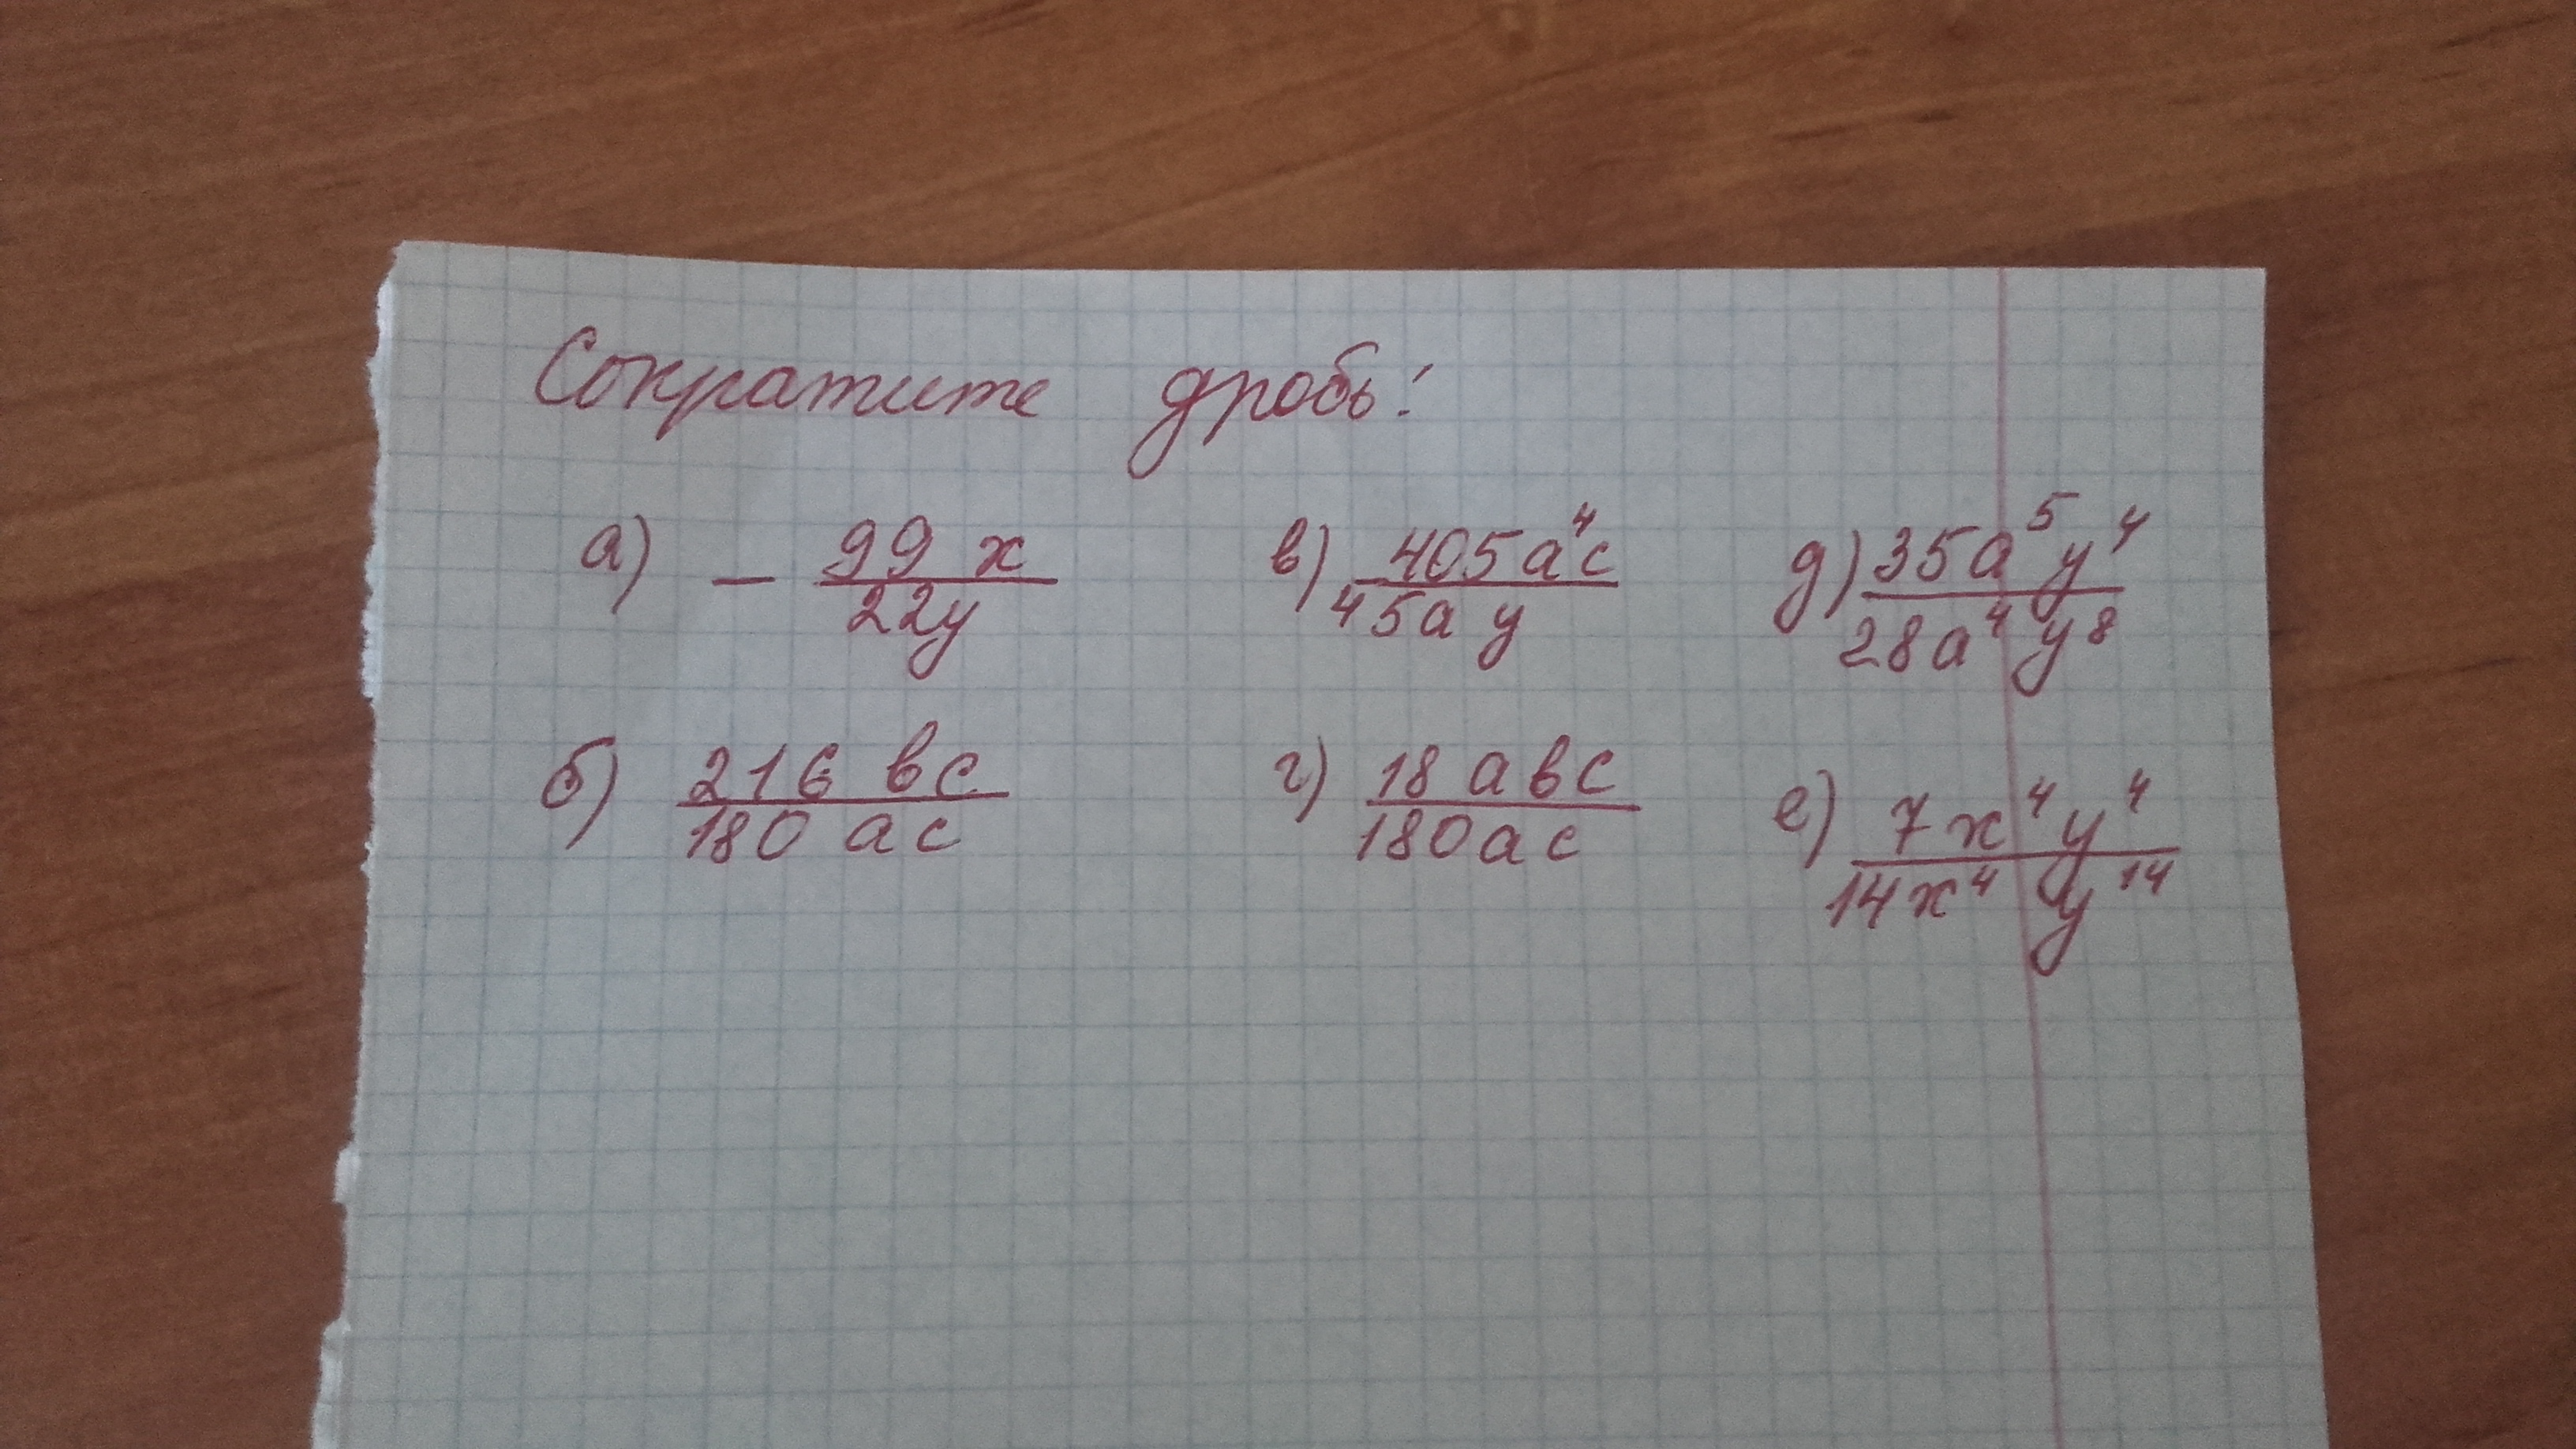 Сократите дробь:
а) − 99 x / 22y
в) 405a⁴c / 45a y
д) 35a⁵y⁴ / 28a⁴y⁸
б) 216 bc / 180 ac
г) 18 abc / 180ac
е) 7x⁴y⁴ / 14x⁴y¹⁴